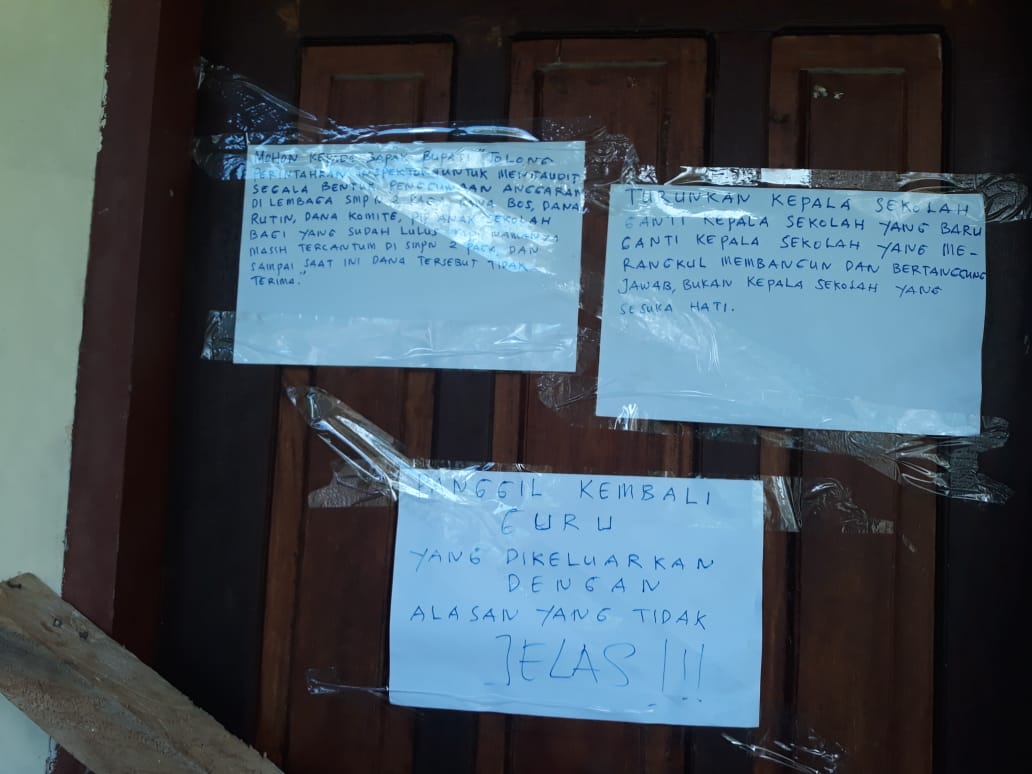 MOHON KEPADA BAPAK BUPATI "TOLONG
PERINTAHKAN INSPEKTUR UNTUK MENGAUDIT
SEGALA BENTUK PENGGUNAAN ANGGARAN
DI LEMBAGA SMPN 2 DANA BOS, DANA
RUTIN, DANA KOMITE, PIP ANAK SEKOLAH
BAGI YANG SUDAH LULUS NAMANYA
MASIH TERCANTUM DI SMPN 2 DAN
SAMPAI SAAT INI DANA TERSEBUT TIDAK
TERIMA."
TURUNKAN KEPALA SEKOLAH
GANTI KEPALA SEKOLAH YANG BARU
GANTI KEPALA SEKOLAH YANG ME-
RANGKUL MEMBANGUN DAN BERTANGGUNG
JAWAB, BUKAN KEPALA SEKOLAH YANG
SESUKA HATI.
PANGGIL KEMBALI
GURU
YANG DIKELUARKAN
DENGAN
ALASAN YANG TIDAK
JELAS !!!